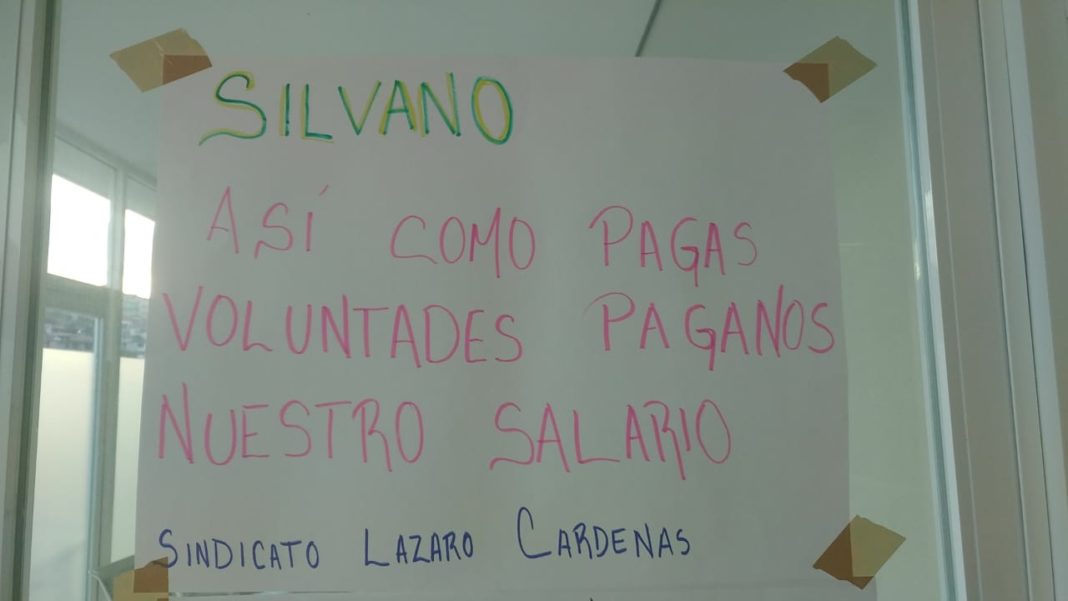 SILVANO
ASÍ COMO PAGAS
VOLUNTADES PAGANOS
NUESTRO SALARIO
SINDICATO LAZARO CARDENAS